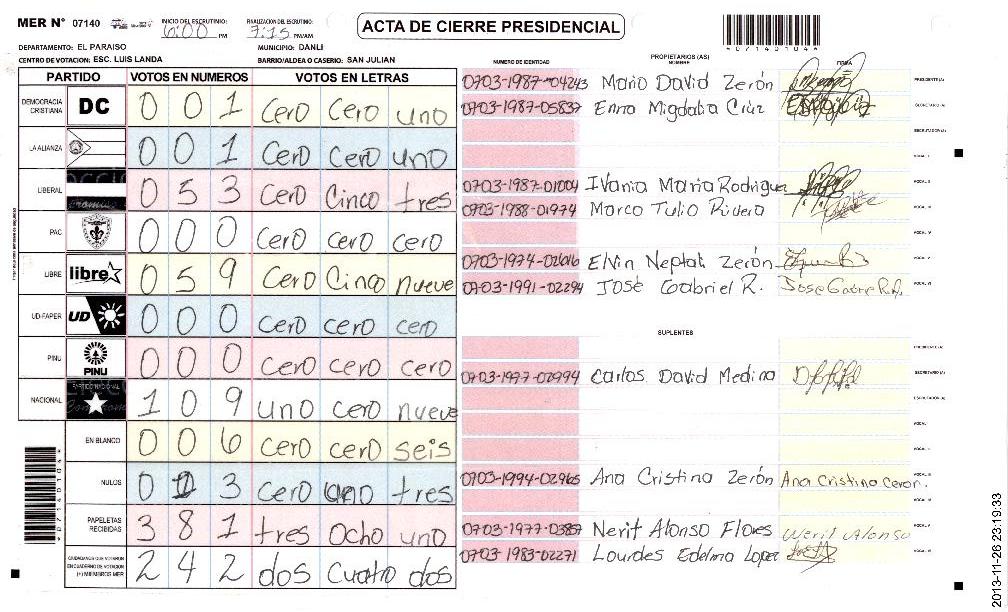 MER Nº 07140 INICIO DEL ESCRUTINIO: 6:00 PM FINALIZACION DEL ESCRUTINIO: 7:15 PM/AM
ACTA DE CIERRE PRESIDENCIAL
*07140104*
DEPARTAMENTO: EL PARAISO MUNICIPIO: DANLI
CENTRO DE VOTACION: ESC. LUIS LANDA BARRIO/ALDEA O CASERIO: SAN JULIAN
PARTIDO VOTOS EN NUMEROS VOTOS EN LETRAS
DEMOCRACIA CRISTIANA DC 0 0 1 Cero Cero uno
LA ALIANZA 0 0 1 Cero Cero uno
LIBERAL 0 5 3 Cero Cinco tres
PAC 0 0 0 Cero Cero cero
LIBRE libre 0 5 9 Cero Cinco nueve
UD-FAPER UD 0 0 0 Cero cero cero
PINU PINU 0 0 0 Cero cero cero
NACIONAL PARTIDO NACIONAL 1 0 9 uno cero nueve
EN BLANCO 0 0 6 cero cero seis
NULOS 0 3 Cero tres
PAPELETAS RECIBIDAS 3 8 1 tres Ocho uno
CIUDADANOS QUE VOTARON EN CUADERNO DE VOTACION (+) MIEMBROS MER 2 4 2 dos cuatro dos
*07140104*
PROPIETARIOS (AS)
NUMERO DE IDENTIDAD NOMBRE FIRMA
0703-1987-04243 Mario David Zerón PRESIDENTE(A)
0703-1987-05837 Enma Migdalia Cruz SECRETARIO (A)
ESCRUTADOR (A)
VOCAL I
0703-1987-01004 Ivania Maria Rodrigue VOCAL II
0703-1988-01974 Marco Tulio Rivera VOCAL III
VOCAL IV
0703-1974-02616 Elvin Neptali Zerón VOCAL V
0703-1991-02294 José Gabriel R. VOCAL VI
SUPLENTES
PRESIDENTE (A)
0703-1997-02994 Carlos David Medina SECRETARIO(A)
ESCRUTADOR (A)
VOCAL I
VOCAL II
0703-1994-02965 Ana Cristina Zerón Ana Cristina Ceron. VOCAL III
VOCAL IV
0703-1977-03857 Nerit Alonso Flores Nerit Alonso VOCAL V
0703-1983-02271 Lourdes Edelma Lopez VOCAL VI
2013-11-26 23:19:33